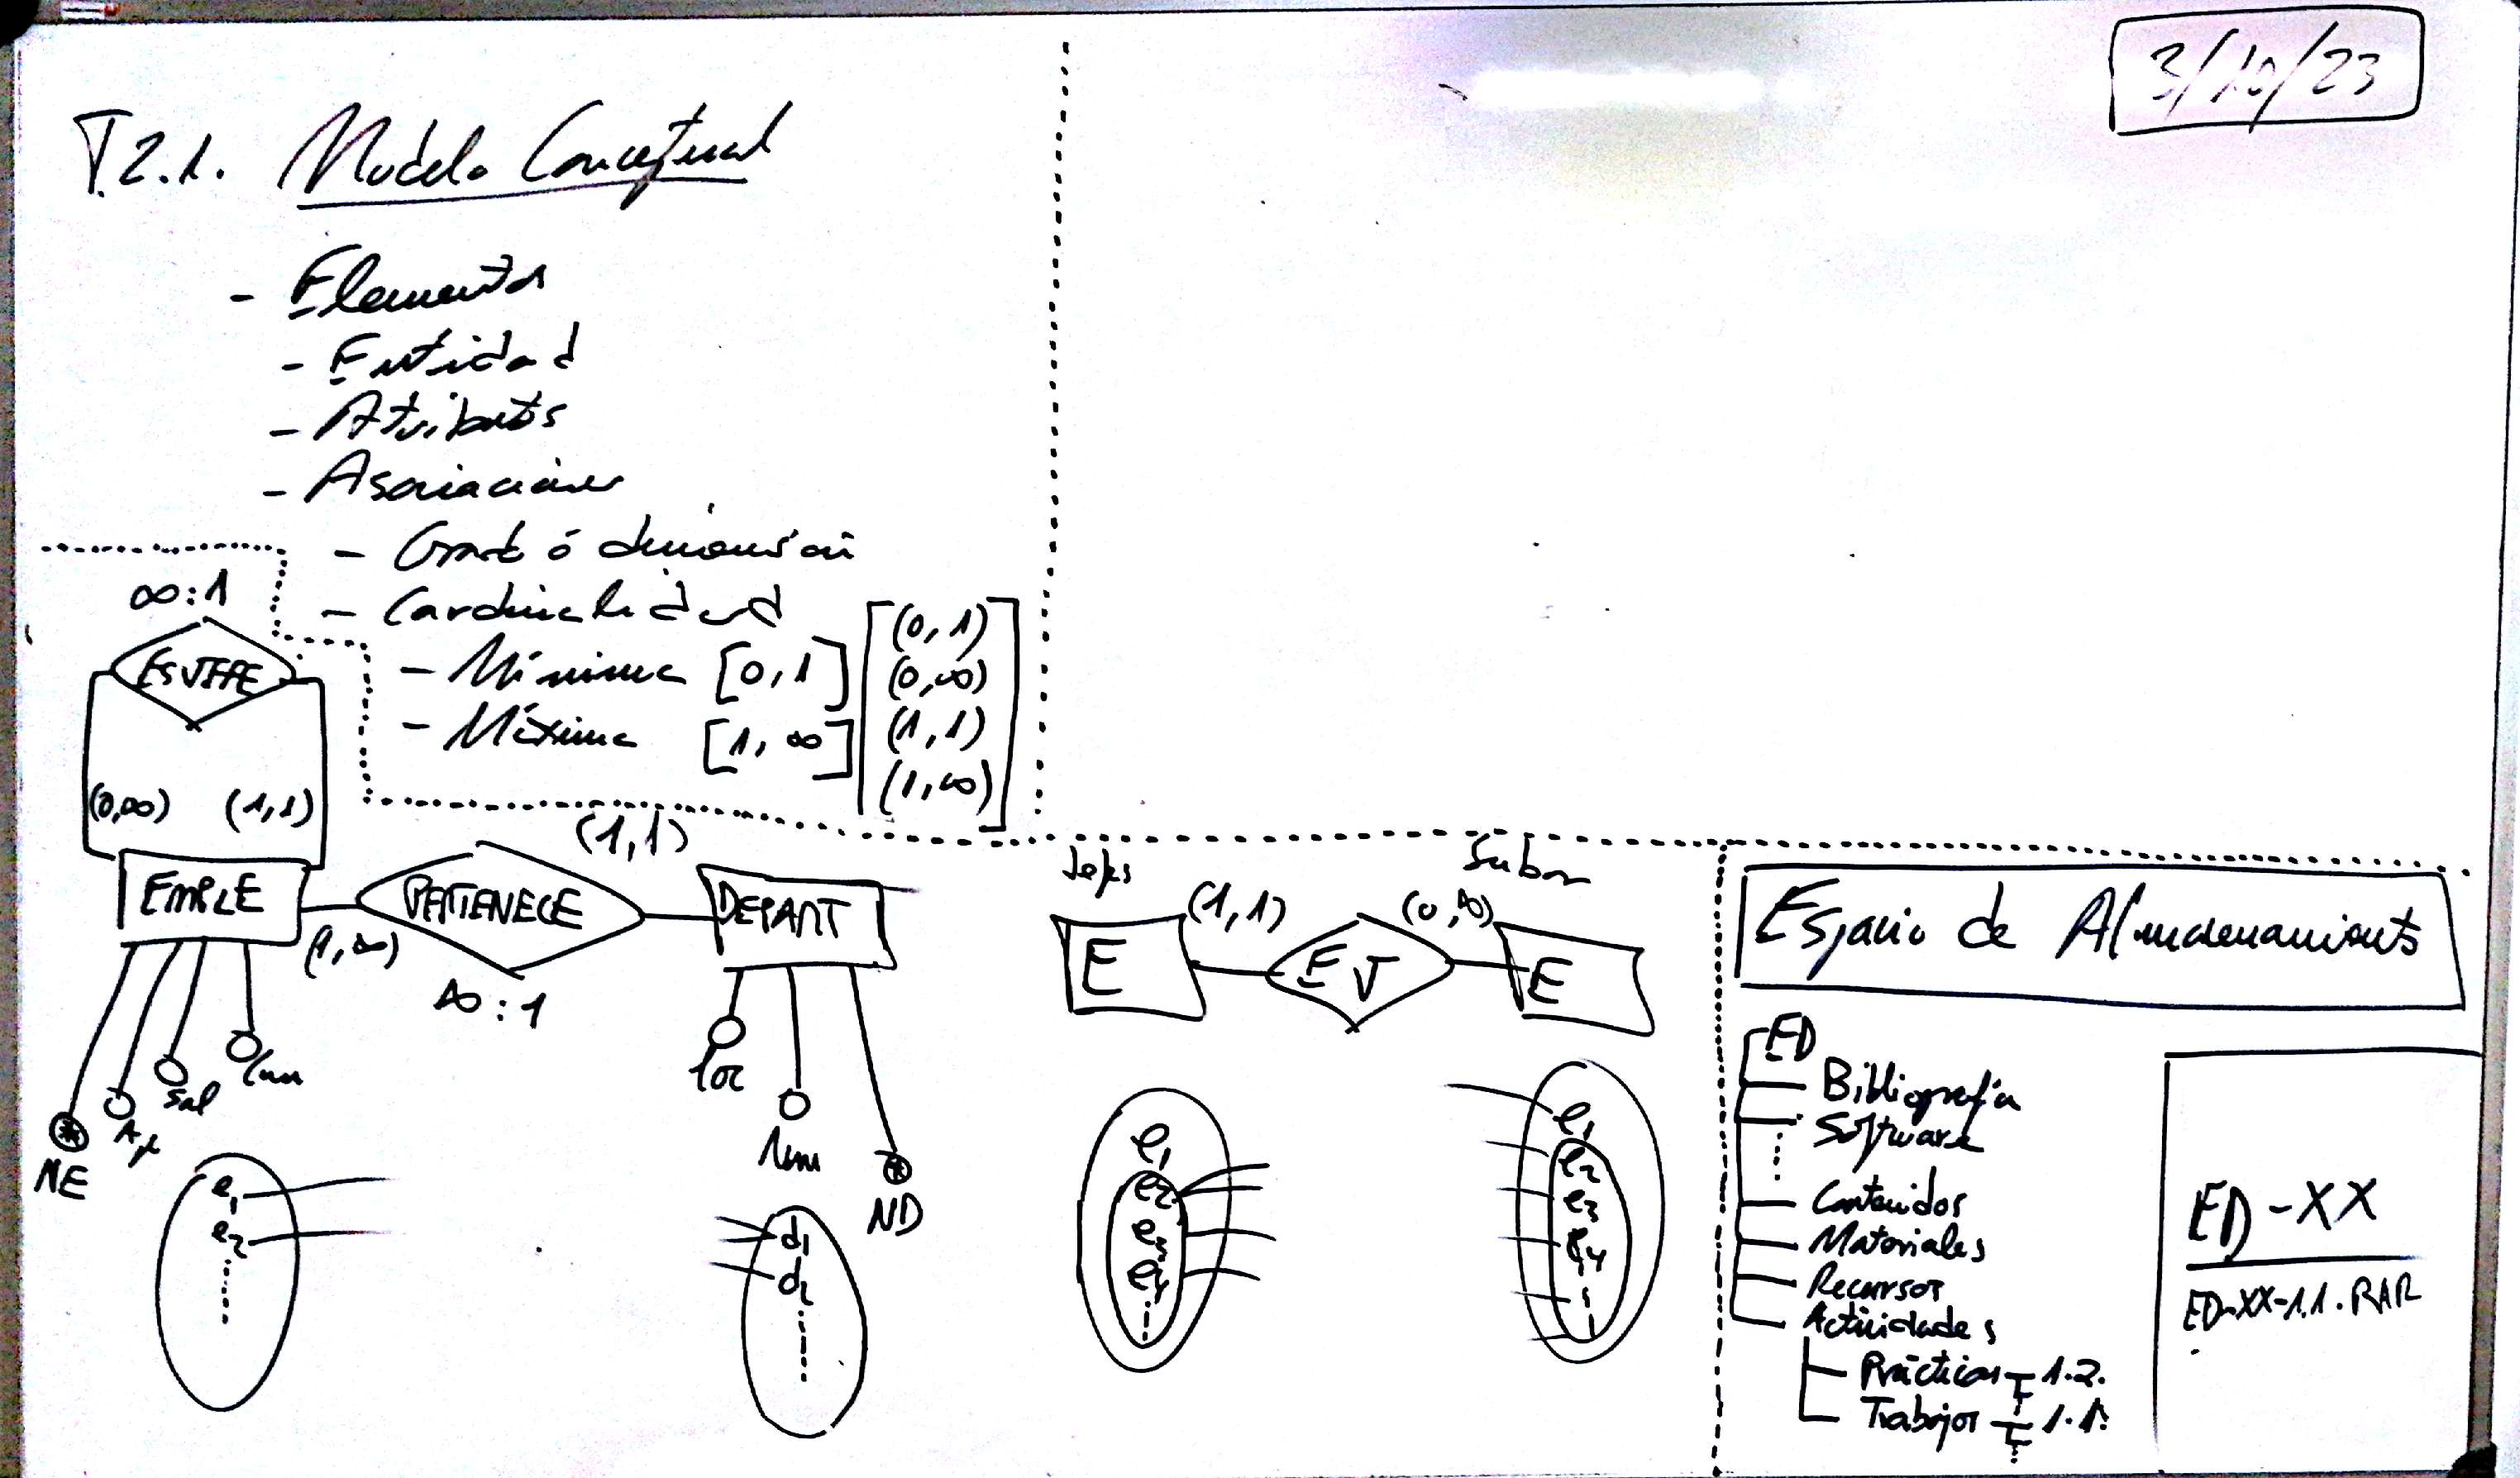 3/10/23
T.2.1. Modelo Conceptual
- Elementos
- Entidad
- Atributos
- Asociaciones
- Grado ó dimensión
- Cardinalidad
- Mínima [0,1]
- Máxima [1,∞]
(0,1)
(0,∞)
(1,1)
(1,∞)
∞:1
ES JEFE
(0,∞) (1,1)
EMPLE
(1,∞)
PERTENECE
(1,1)
∞:1
DEPART
NE
Ap
Sal
loc
Nom
ND
e1
e2
d1
d2
Jefes
Subor
E
(1,1)
EJ
(0,∞)
E
e1
e2
e3
e4
e1
e2
e3
e4
Espacio de Almacenamiento
ED
Bibliografía
Software
Contenidos
Materiales
Recursos
Actividades
Prácticas 1.2.
Trabajos 1.1.
ED-XX
ED-XX-1.1.RAR